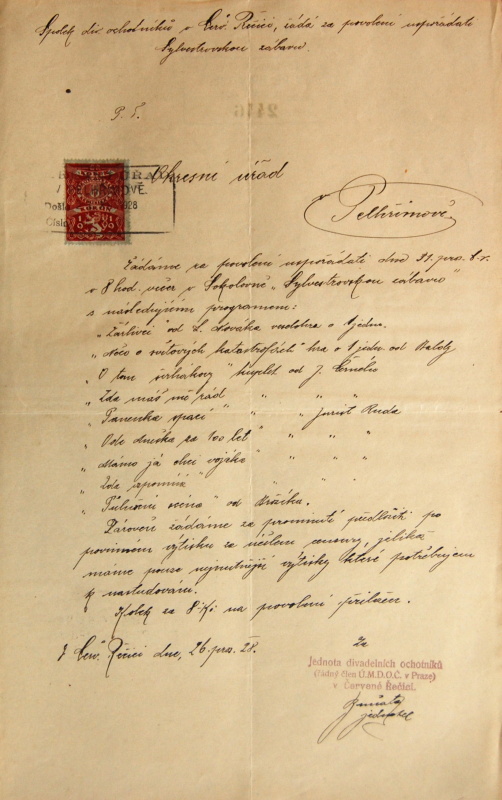 Spolek div. ochotníků v Červ. Řečici, žádá za povolení uspořádati
Sylvestrovskou zábavu.
P. T.
2446
Okresní úřad
v Pelhřimově.
Žádáme za povolení uspořádati dne 31. pros. t. r.
v 8 hod. večer v Sokolovně „Sylvestrovskou zábavu“
s následujícím programem:
„Žárlivci“ od L. Nováka veselohra o 1 jedn.
„Noco o světových katastrofách“ hra o 1 jedn. od
„O tom“ kuplet od J.
„Zda máš mě rád “ “
„Panenka spací “ “ Jurist Ruda
„Ode dneška za 100 let“ “ “ “
„Mámo já chci vojáka“ “ “ “
„Zda vzpomíná“ “ “
„Půlnoční scéna“ od
Zároveň žádáme za prominutí předložiti po
povinném výtisku za účelem censury, jelikož
máme pouze nejnutnější výtisky které potřebujem
k nastudování.
Kolek za 8 Kč na povolení přiložen.
V Červ. Řečici dne, 26. pros. 28.
Za
Jednota divadelních ochotníků
(řádný člen Ú.M.D.O.Č. v Praze)
v Červené Řečici.
jednatel